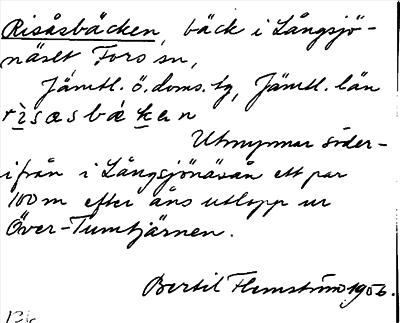 Risåsbäcken, bäck i Långsjö-
näset Fors sn,
Jämtl. ö. doms. tg, Jämtl. län
rìsæsbákæn
Utmynnar söder-
ifrån i Långsjönäsån ett par
100 m efter åns utlopp ur
Över-Tumtjärnen.
Bertil Flemström 1956.